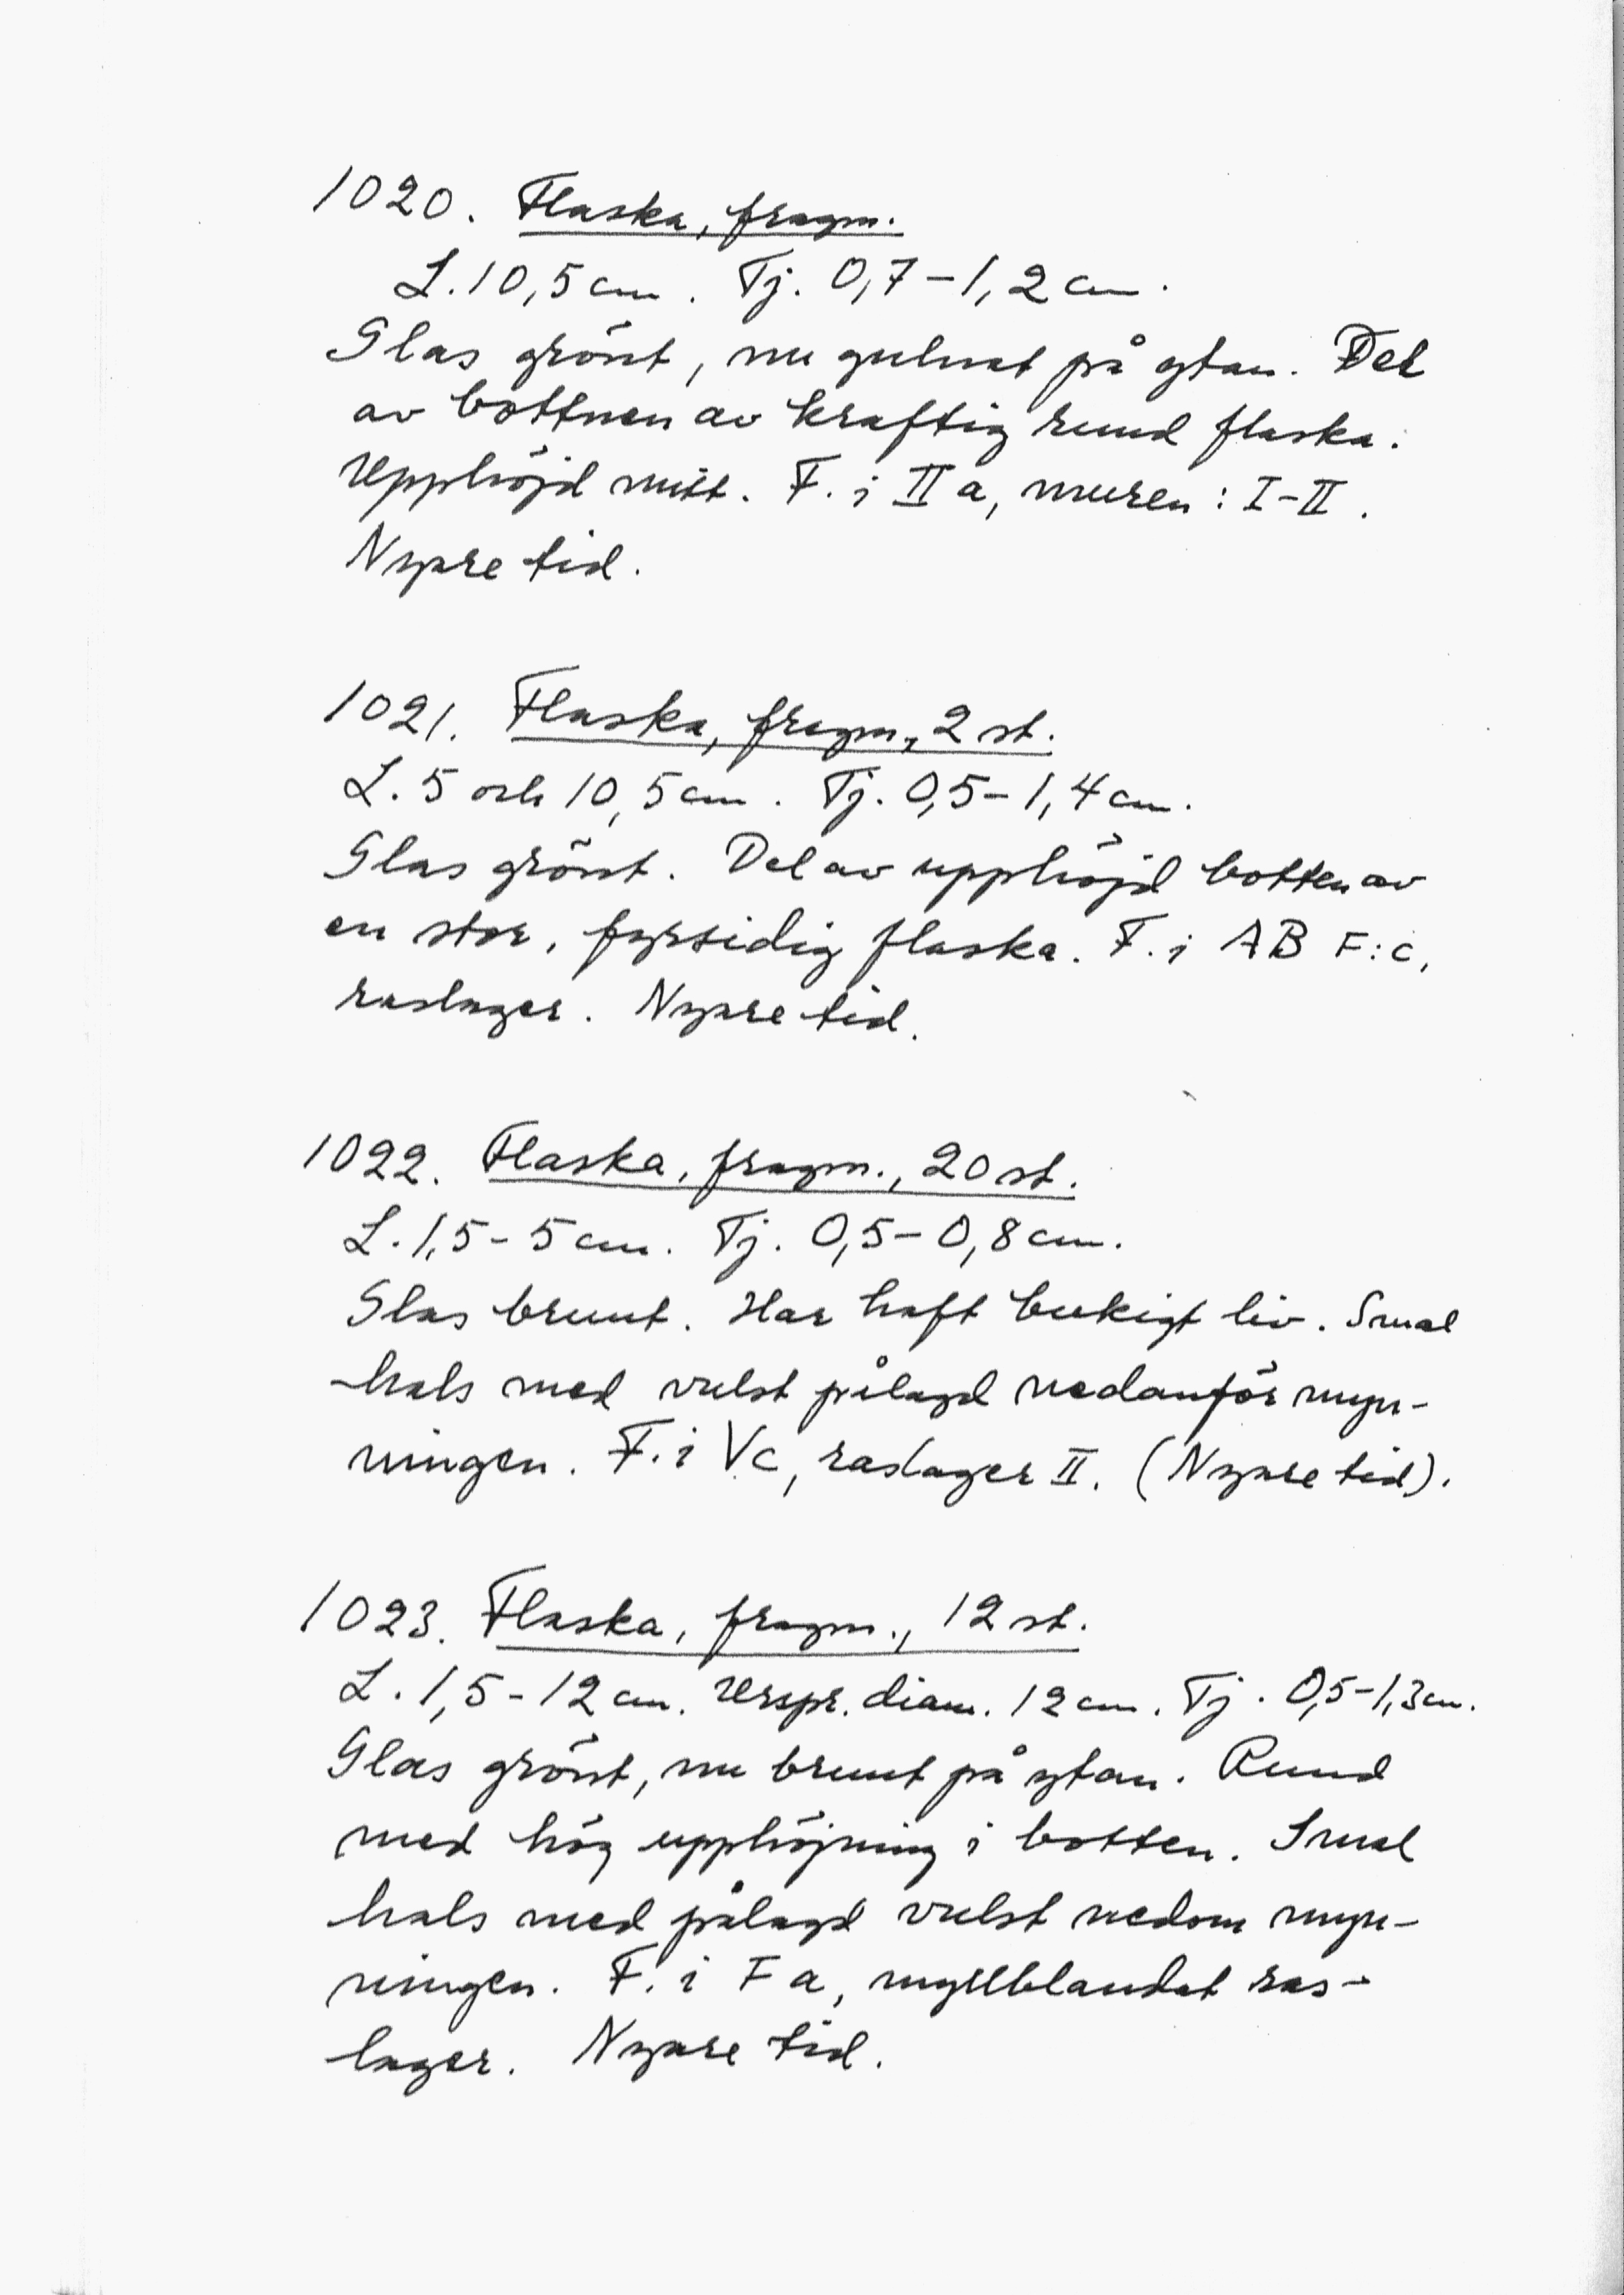 1020. Flaska, fragm.
L. 10,5 cm. Tj. 0,7-1,2 cm.
Glas grönt, nu gulnat på ytan. Del
av bottnen av kraftig rund flaska.
Upphöjd mitt. F. i II a, muren: I-II.
Nyare tid.
1021. Flaska, fragm., 2 st.
L. 5 och 10,5 cm. Tj. 0,5-1,4 cm.
Glas grönt. Del av upphöjd botten av
en stor, fyrsidig flaska. F. i AB F:c,
raslager. Nyare tid.
1022. Flaska, fragm., 20 st.
L. 1,5-5 cm. Tj. 0,5-0,8 cm.
Glas brunt. Har haft bukigt liv. Smal
hals med vulst pålagd nedanför myn-
ningen. F. i Vc, raslager II. (Nyare tid).
1023. Flaska, fragm., 12 st.
L. 1,5-12 cm. Urspr. diam. 12 cm. Tj. 0,5-1,3 cm.
Glas grönt, nu brunt på ytan. Rund
med hög upphöjning i botten. Smal
hals med pålagd vulst nedom myn-
ningen. F. i F a, myllblandat ras-
lager. Nyare tid.